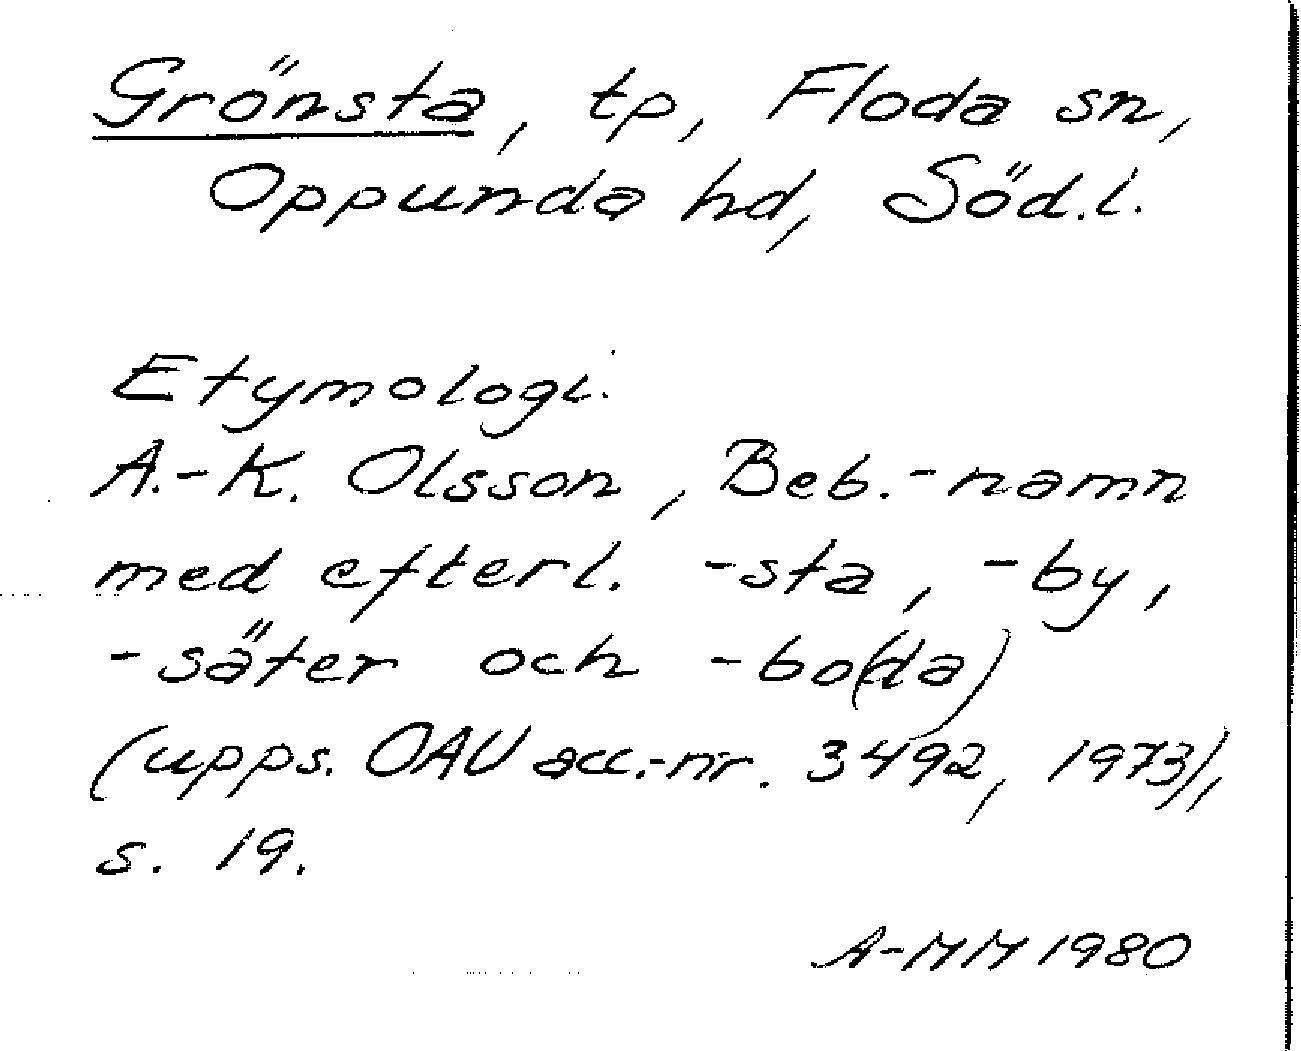 Grönsta, tp, Floda sn,
Oppunda hd, Söd.l.
Etymologi.
A.-K. Olsson, Beb.-namn
med efterl. -sta, -by,
-säter och -bo(da)
(upps. OAU acc.-nr. 3492, 1973),
s. 19.
A-MM 1980